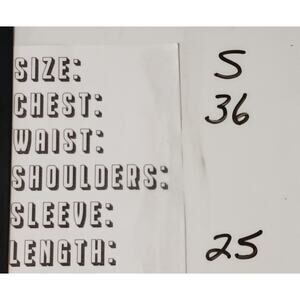 SIZE: S
CHEST: 36
WAIST:
SHOULDERS:
SLEEVE:
LENGTH: 25